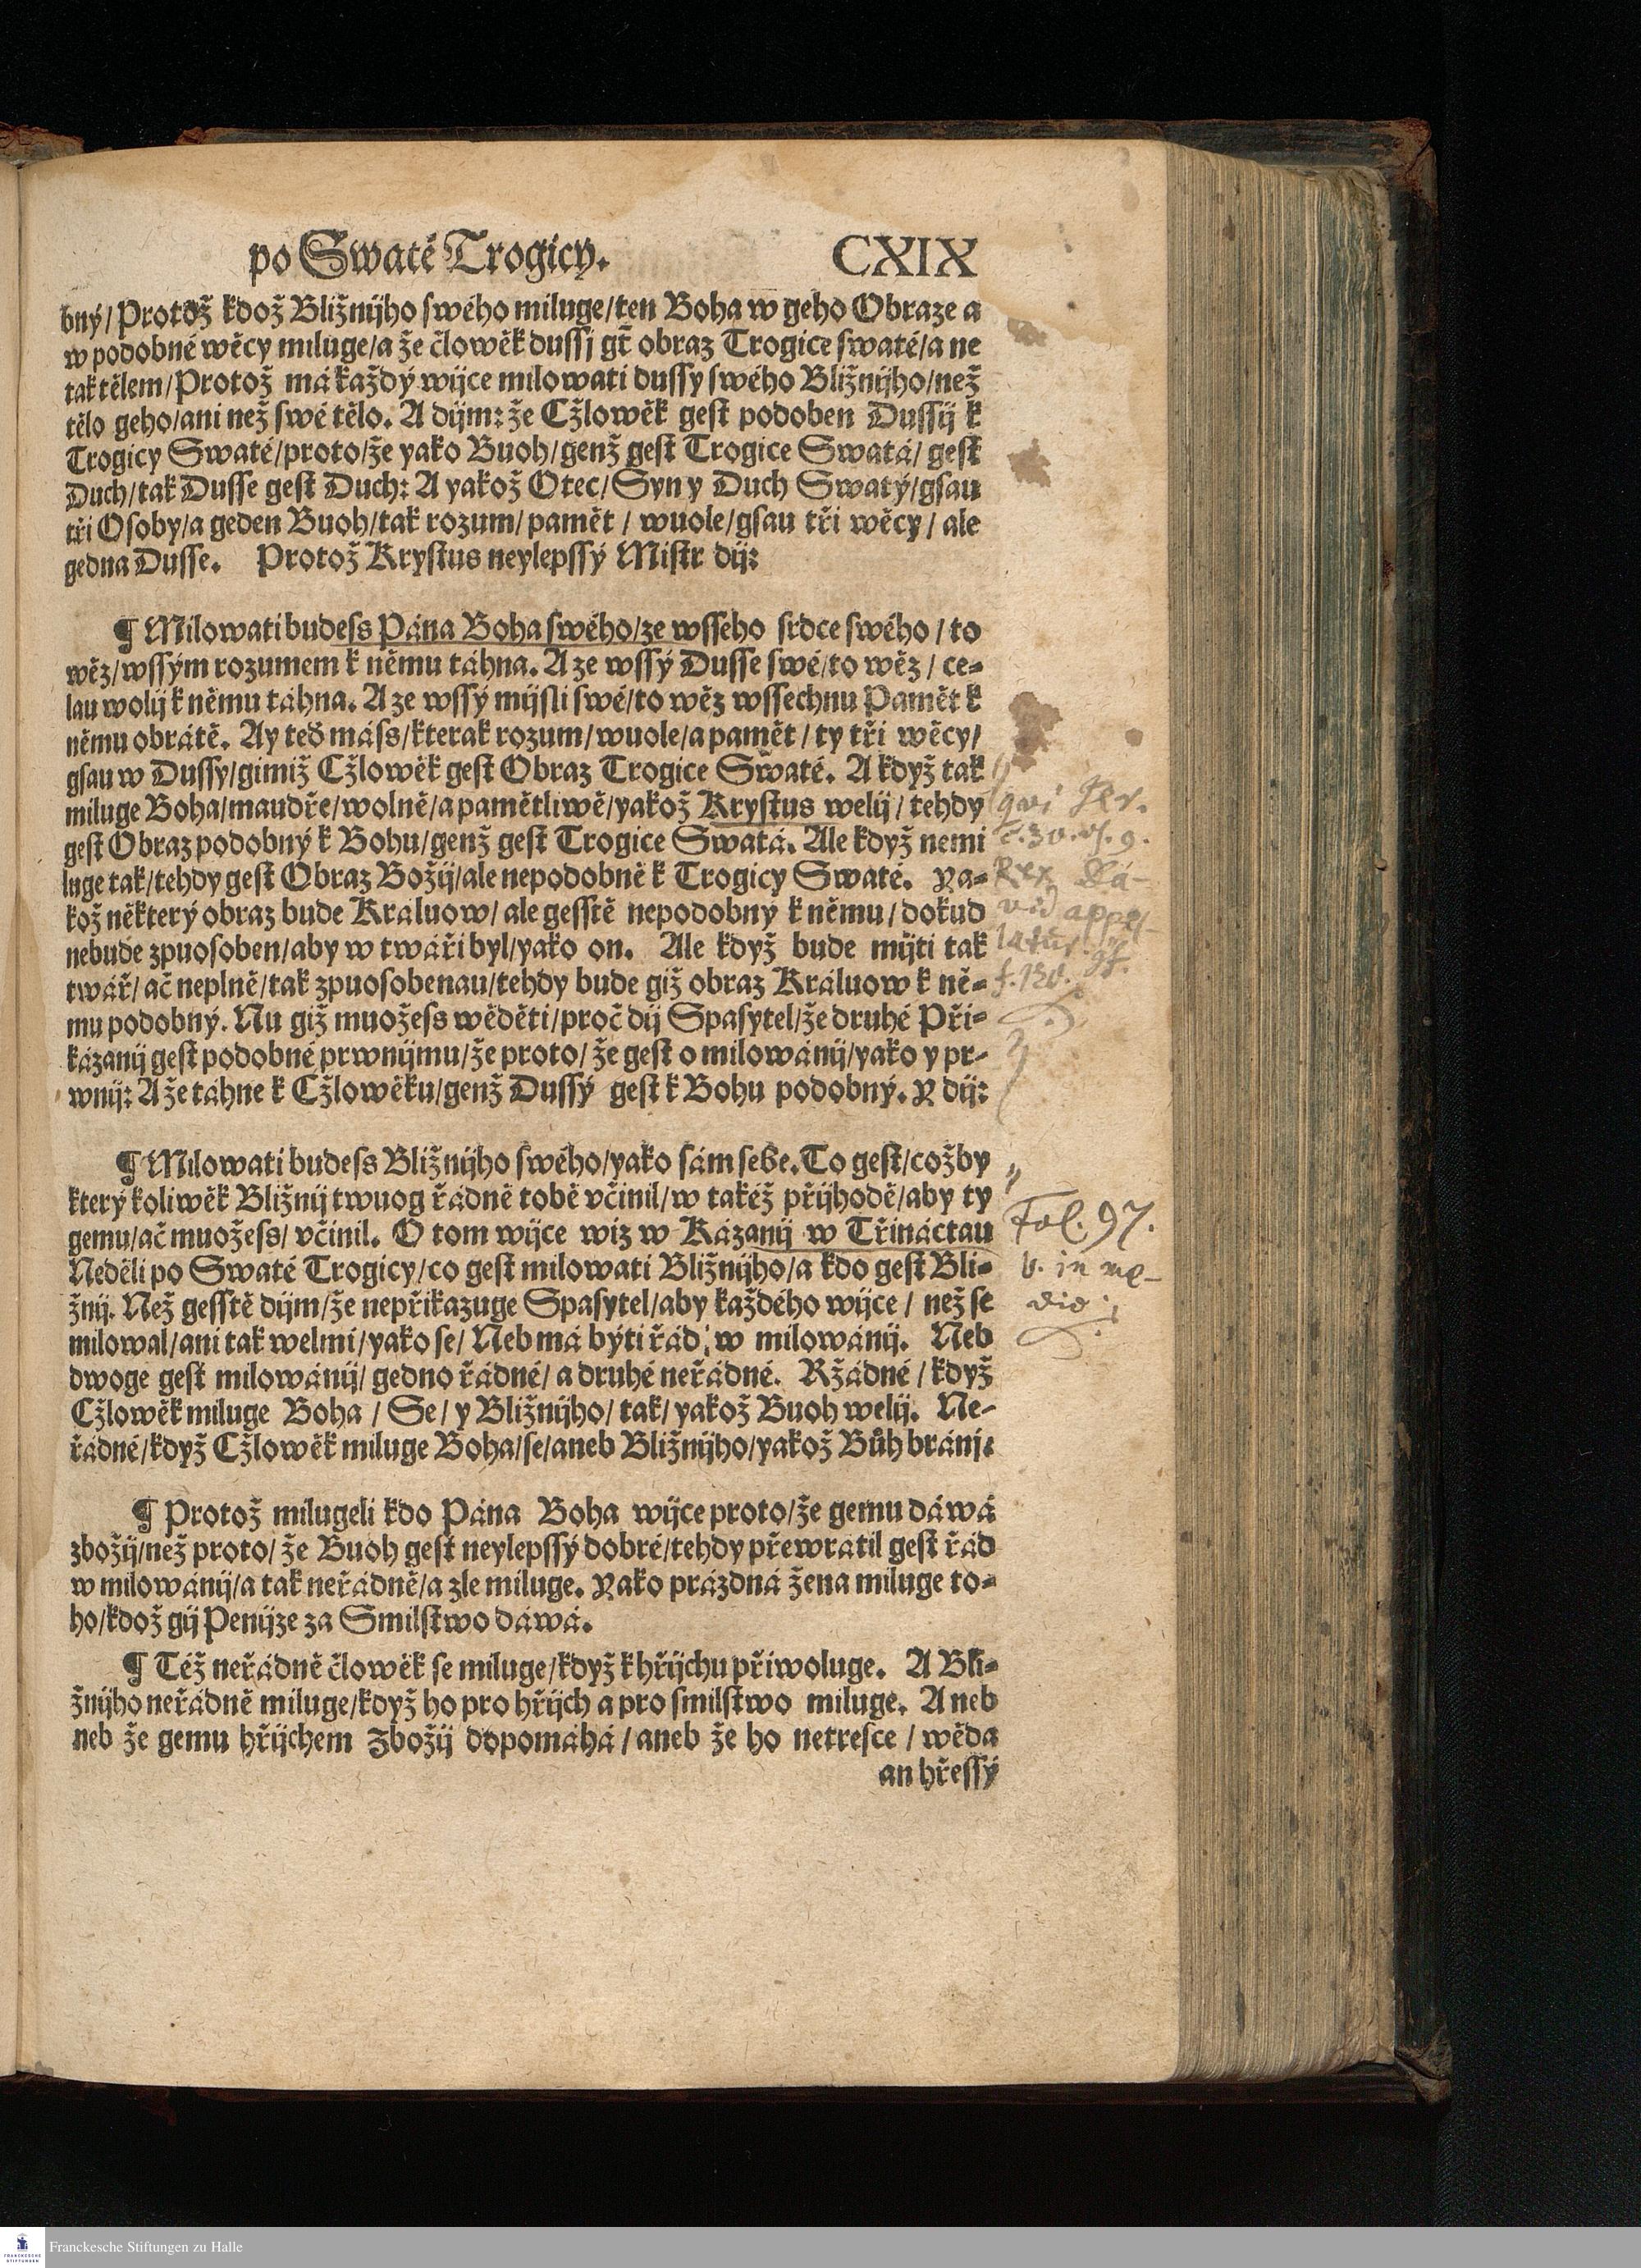 po Swaté Trogicy. CXIX
bný/Protož kdož Bližnijho swého miluge/ten Boha w geho Obraze a
w podobné wěcy miluge/a že člowěk dussj gt̃ obraz Trogice swaté/a ne
tak tělem/Protož má každý wijce milowati dussy swého Bližnijho/než
tělo geho/ani než swé tělo. A dijm: že Cžlowěk gest podoben Dussij k
Trogicy Swaté/proto/že yako Buoh/genž gest Trogice Swatá/ gest
Duch/tak Dusse gest Duch: A yakož Otec/Syn y Duch Swatý/gsau
tři Osoby/a geden Buoh/tak rozum/pamět / wuole/gsau tři wěcy/ ale
gedna Dusse. Protož Krystus neylepssý Mistr dij:
¶ Milowati budess Pána Boha swého/ze wsseho srdce swého / to
wěz/wssým rozumem k němu táhna. A ze wssý Dusse swé/to wěz / ce-
lau wolij k němu táhna. A ze wssý mijsli swé/to wěz wssechnu Pamět k
němu obrátě. Ay teď máss/kterak rozum/wuole/a pamět / ty tři wěcy/
gsau w Dussy/gimiž Cžlowěk gest Obraz Trogice Swaté. A když tak
miluge Boha/maudře/wolně/a pamětliwě/yakož Krystus welij / tehdy
gest Obraz podobný k Bohu/genž gest Trogice Swatá. Ale když nemi
luge tak/tehdy gest Obraz Božij/ale nepodobně k Trogicy Swaté. Ya-
kož některý obraz bude Králuow/ ale gesstě nepodobný k němu/dokud
nebude zpuosoben/aby w twáři byl/yako on. Ale když bude mijti tak
twář/ ač neplně/tak zpuosobenau/tehdy bude giž obraz Králuow k ně-
mu podobný. Nu giž muožess wěděti/proč dij Spasytel/že druhé Při-
kázanij gest podobné prwnijmu/že proto/ že gest o milowánij/yako y pr-
wnij: A že táhne k Cžlowěku/genž Dussý gest k Bohu podobný. Y dij:
¶ Milowati budess Bližnijho swého/yako sám sebe. To gest/cožby
který koliwěk Bližnij twuog řádně tobě včinil/w takéž přijhodě/aby ty
gemu/ač muožess/ včinil. O tom wijce wiz w Kázanij w Třináctau
Neděli po Swaté Trogicy/co gest milowati Bližnijho/a kdo gest Bli-
žnij. Než gesstě dijm/že nepřikazuge Spasytel/aby každého wijce / než se
milowal/ani tak welmi/yako se/ Neb má býti řád w milowánij. Neb
dwoge gest milowánij/ gedno řádné/ a druhé neřádné. Ržádné / když
Cžlowěk miluge Boha / Se/ y Bližnijho/ tak/ yakož Buoh welij. Ne-
řádné/když Cžlowěk miluge Boha/se/aneb Bližnijho/yakož Bůh bránj:
¶ Protož milugeli kdo Pána Boha wijce proto/že gemu dáwá
zbožij/než proto/ že Buoh gest neylepssý dobré/tehdy přewrátil gest řád
w milowánij/a tak neřádně/a zle miluge. Yako prázdná žena miluge to-
ho/kdož gij Penijze za Smilstwo dáwá.
¶ Též neřádně člowěk se miluge/když k hřijchu přiwoluge. A Bli-
žnijho neřádně miluge/když ho pro hřijch a pro smilstwo miluge. Aneb
neb že gemu hřijchem Zbožij dopomáhá / aneb že ho netresce / wěda
an hřessý
qvi Jer.
c. 30. vs. 9.
Rex Da-
vid appel-
latur
Fol. 97.
b. in me-
dio
Franckesche Stiftungen zu Halle